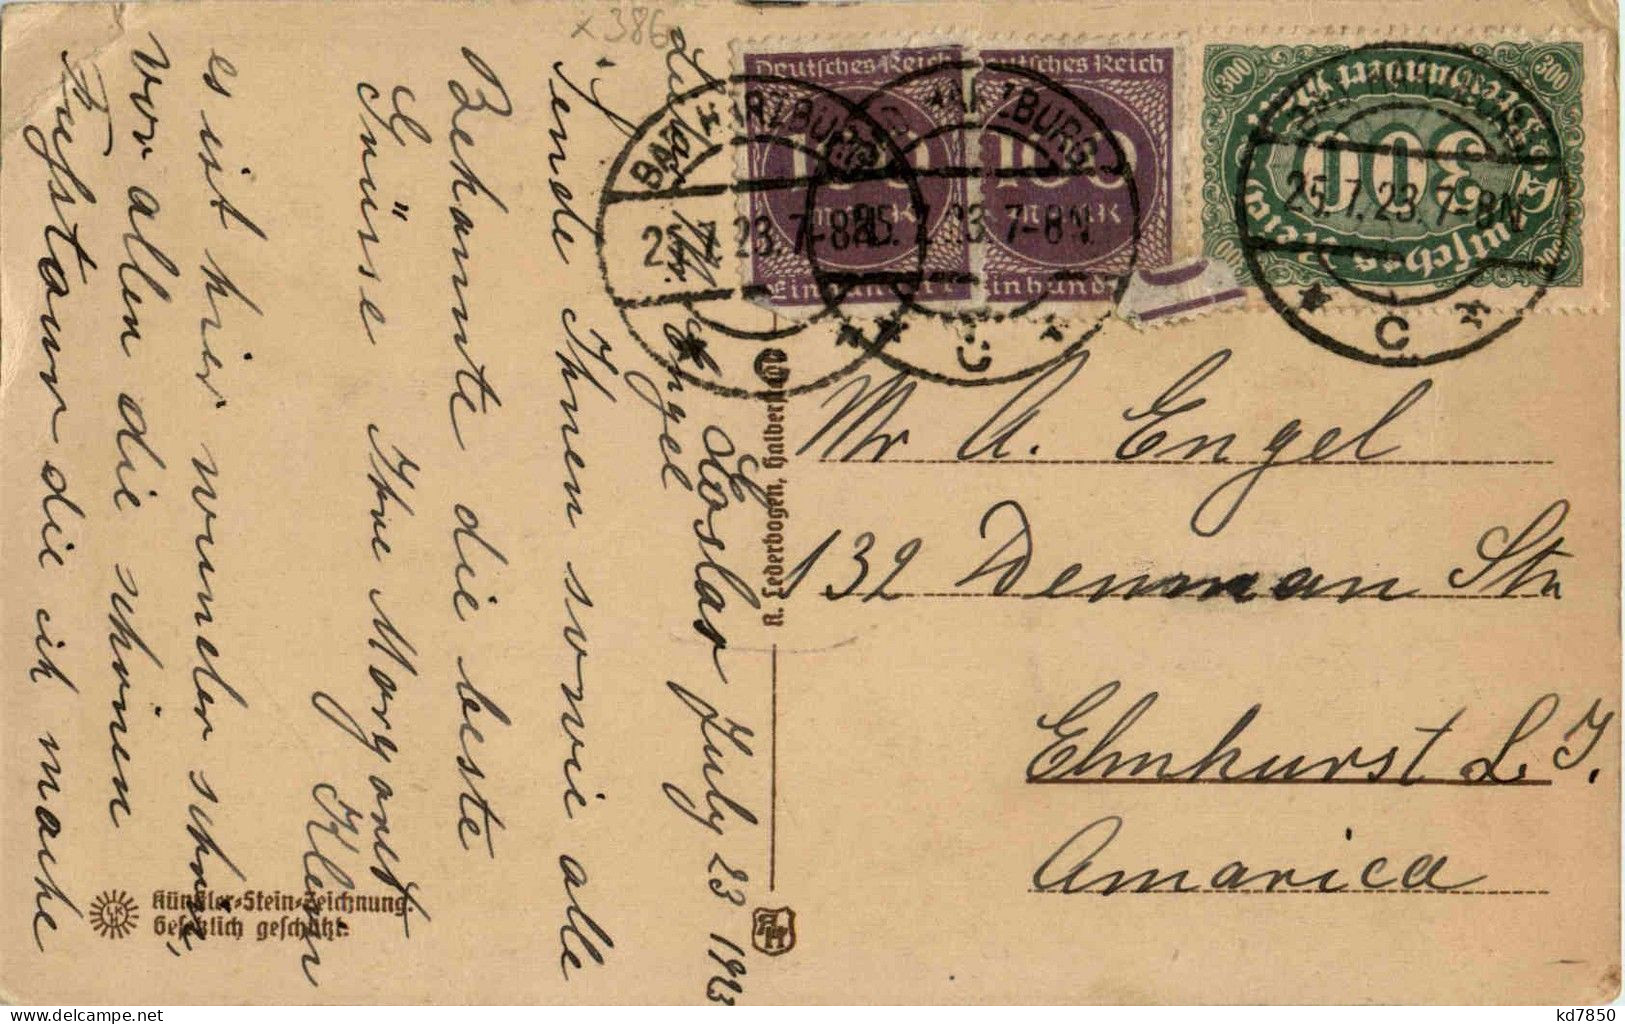 x 386
Goslar July 23 1923
Lieber Mr. Engel
Sende Ihnen sowie alle
Bekannte die beste
Grüsse Ihre Margaret
Klein
es ist hier wunder schön,
vor allen die schönen
Fußtaur die ich mache
Deutsches Reich
100
Mark
Einhundert
Deutsches Reich
100
Mark
Einhundert
300
300
300
Deutsches Reich
BAD HARZBURG
25.7.23.7-8N
BAD HARZBURG
25.7.23.7-8N
C
BAD HARZBURG
25.7.23.7-8N
C
Mr A. Engel
132 Denman Str
Elmhurst L. I.
Amarica
R. Lederbogen, Halberstadt
Künstler-Stein-Zeichnung.
Gesetzlich geschützt.
kd7850